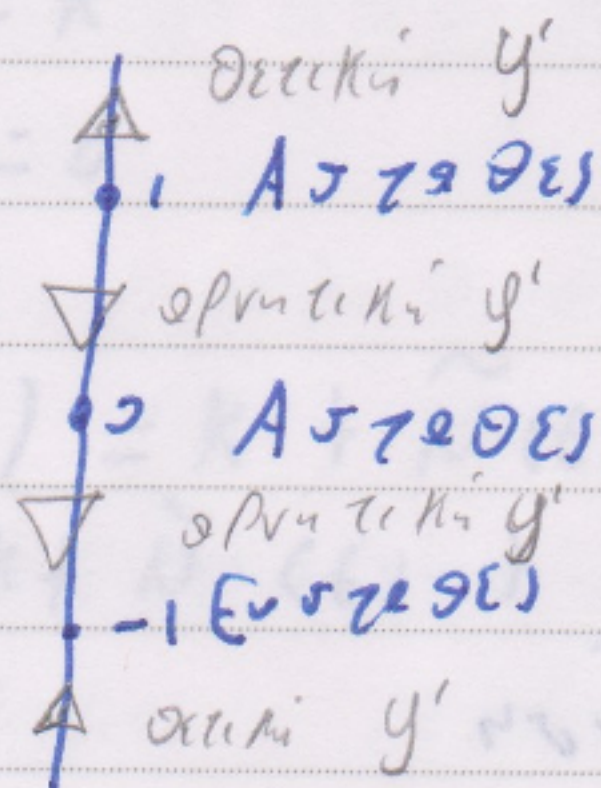 θετική y'
1 Ασταθές
αρνητική y'
0 Ασταθές
αρνητική y'
-1 Ευσταθές
θετική y'